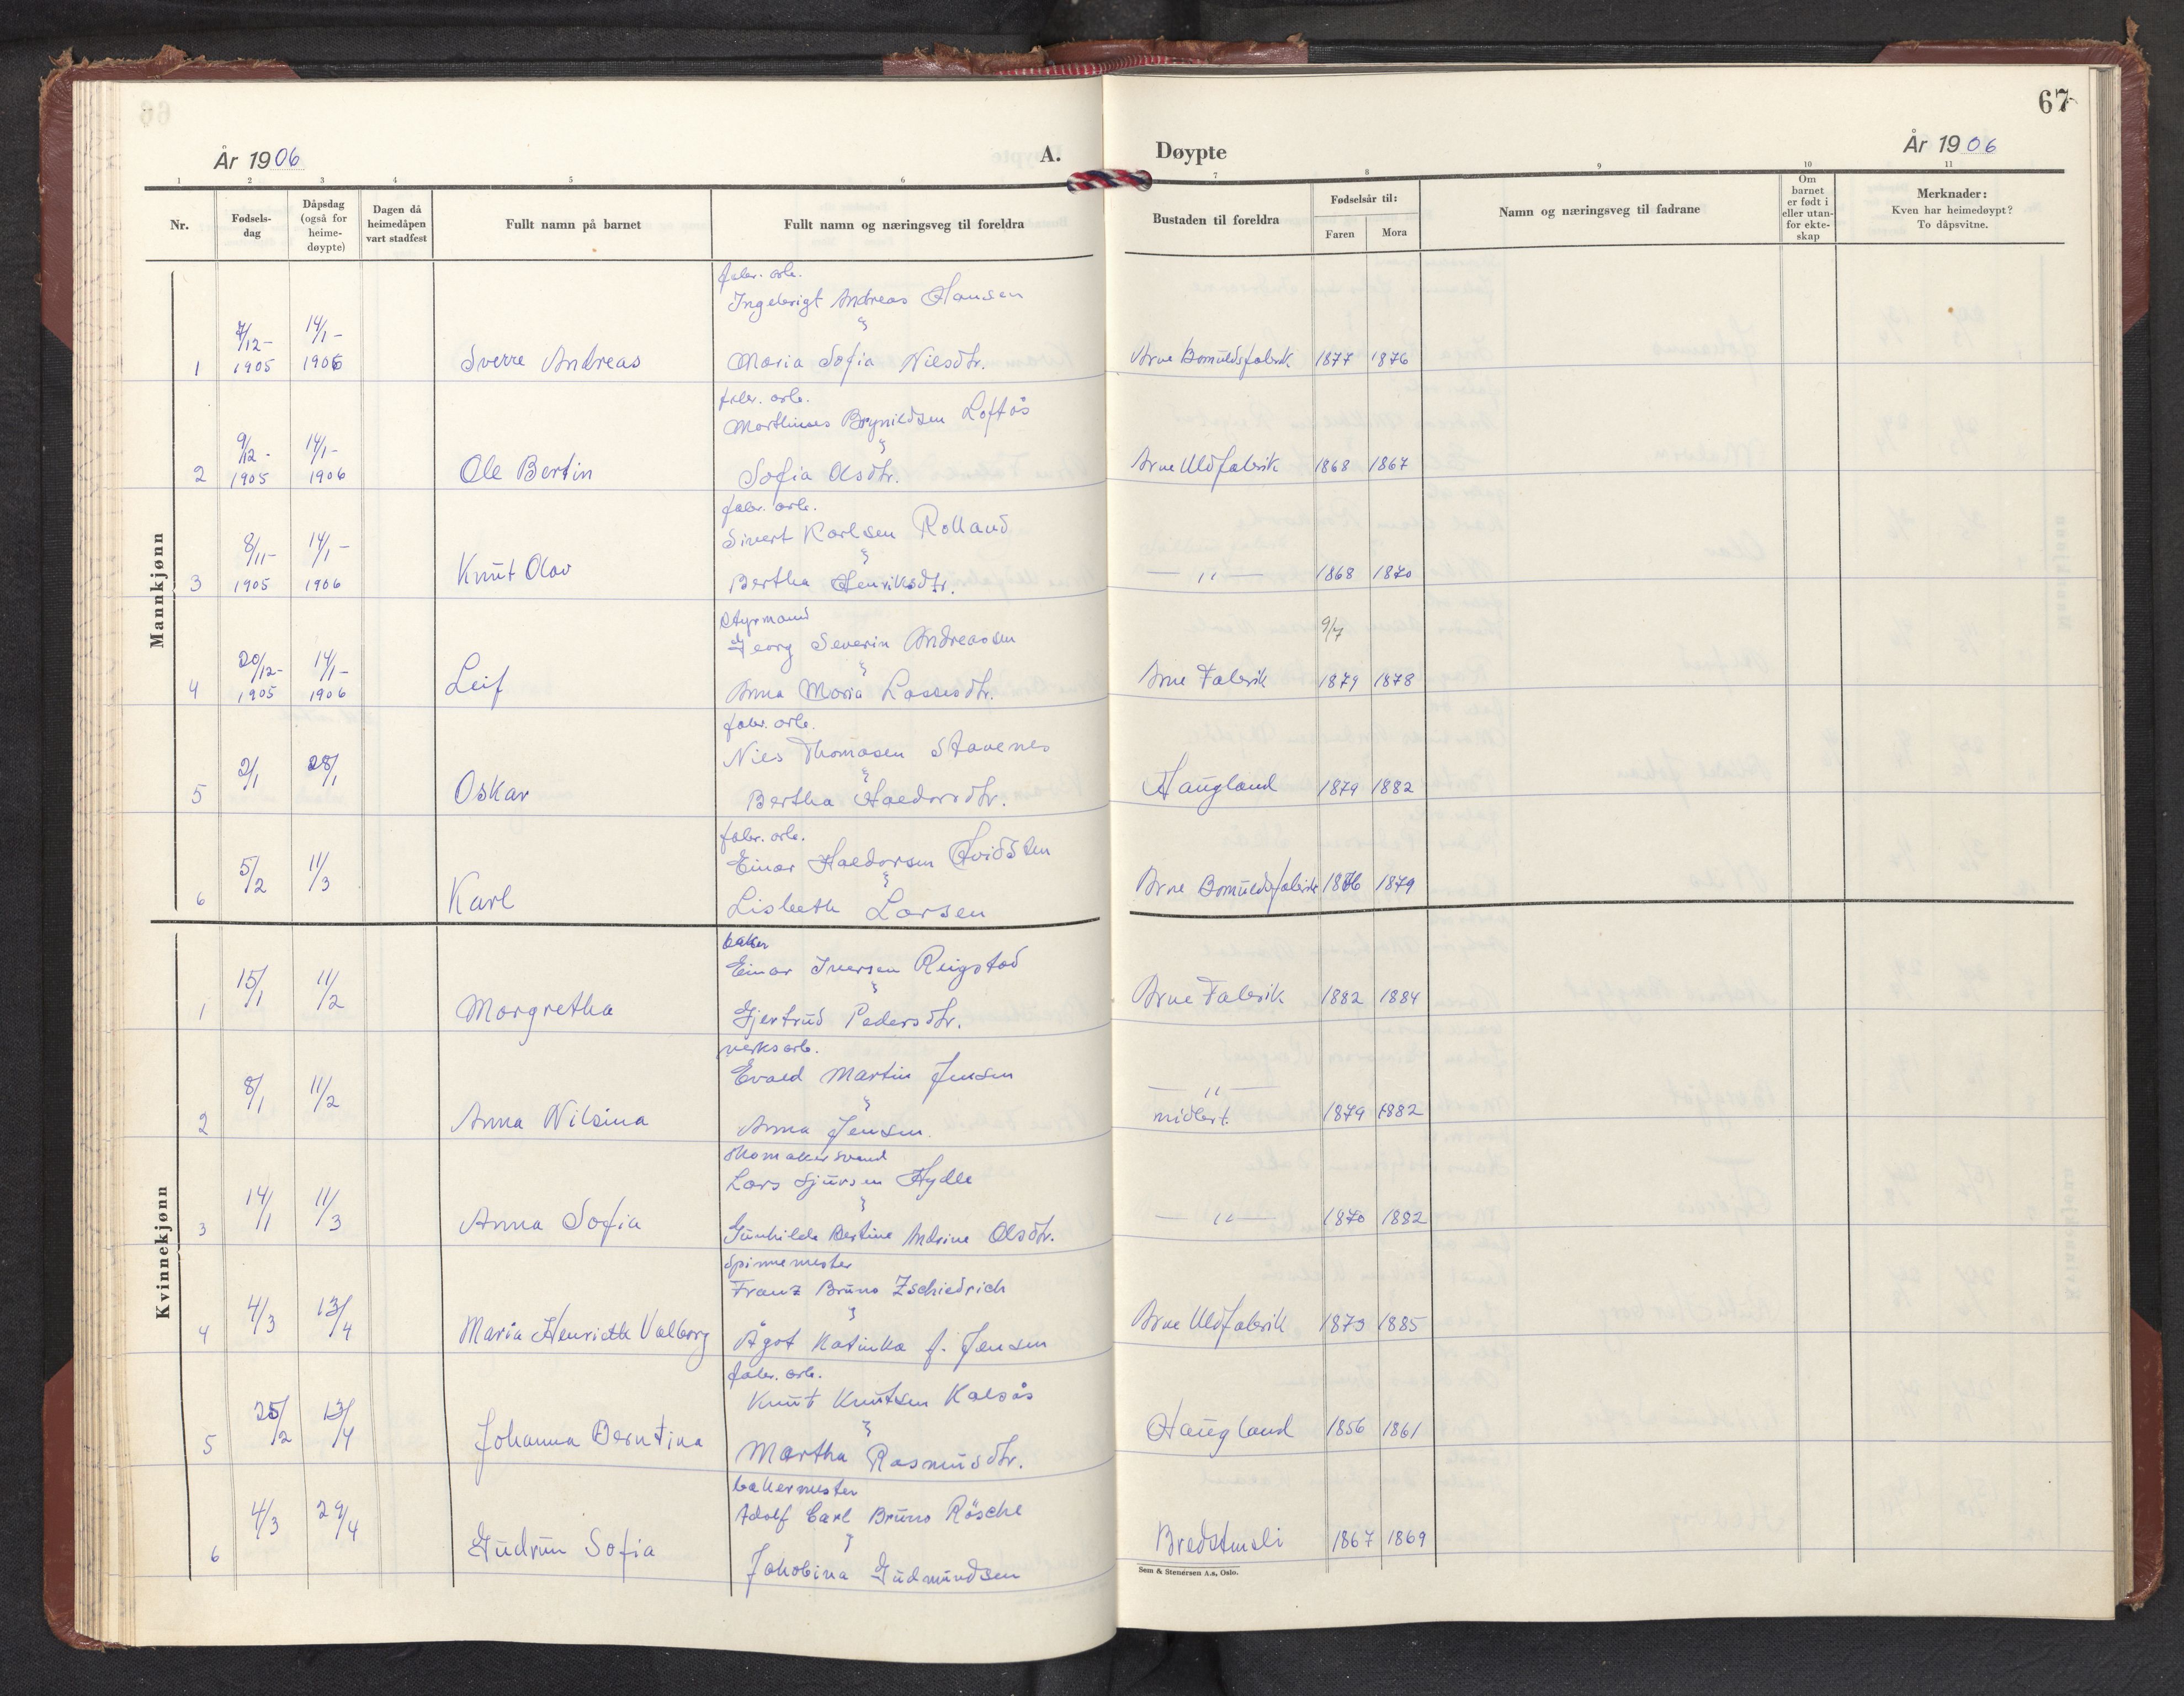 67
År 1906
A.
Døypte
År 1906
1 2 3 4 5 6 7 8 9 10 11
Nr.
Fødsels-
dag
Dåpsdag
(også for
heime-
døypte)
Dagen då
heimedåpen
vart stadfest
Fullt namn på barnet
Fullt namn og næringsveg til foreldra
Bustaden til foreldra
Fødselsår til:
Faren Mora
Namn og næringsveg til fadrane
Om
barnet
er født i
eller utan-
for ekte-
skap
Merknader:
Kven har heimedøypt?
To dåpsvitne.
Mannkjønn
fabr. arb.
Ingebrigt Andreas Hansen
1 7/12- 1905 14/1- 1906 Sverre Andreas Maria Sofia Nilsdtr. Arne Bomuldsfabrik 1877 1876
fabr. arb.
Marthinus Brynildsen Loftås
2 9/12- 1905 14/1- 1906 Ole Bertin Sofia Olsdtr. Arne Uldfabrik 1868 1867
fabr. arb.
Sivert Karlsen Rolland
3 8/11- 1905 14/1- 1906 Knut Olav Bertha Henriksdtr. — " — 1868 1870
Styrmand
Georg Severin Andreassen 9/7
4 20/12- 1905 14/1- 1906 Leif Anna Maria Lassesdtr. Arne Fabrik 1879 1878
fabr. arb.
Nils Thomasen Stavenes
5 2/1 28/1 Oskar Bertha Haldorsdtr. Haugland 1879 1882
fabr. arb.
Einar Haldorsen Hvidsten
6 5/2 11/3 Karl Lisbeth Larsen Arne Bomuldsfabrik 1876 1879
Kvinnekjønn
baker
Einar Iversen Reigstad
1 15/1 11/2 Margretha Gjertrud Pedersdtr. Arne Fabrik 1882 1884
verksarb.
Evald Martin Jensen — " —
2 8/1 11/2 Anna Nilsina Anna Jensen. midlert. 1879 1882
Skomakersvend
Lars Sjursen Hylle
3 14/1 11/3 Anna Sofia Gunhilda Bertine Andrine Olsdtr. — " — 1870 1882
Spinnemester
Franz Bruno Zschiedrich
4 4/3 13/4 Maria Henriette Valborg Ågot Katinka f. Jensen Arne Uldfabrik 1873 1885
fabr. arb.
Knut Knutsen Kalsås
5 25/2 13/4 Johanna Berntina Martha Rasmusdtr. Haugland 1856 1861
bakermester
Adolf Carl Bruno Räsche
6 4/3 29/4 Gudrun Sofia Jakobina Gudmundsen Bredstuoli 1867 1869
Sem & Stenersen A.s, Oslo.